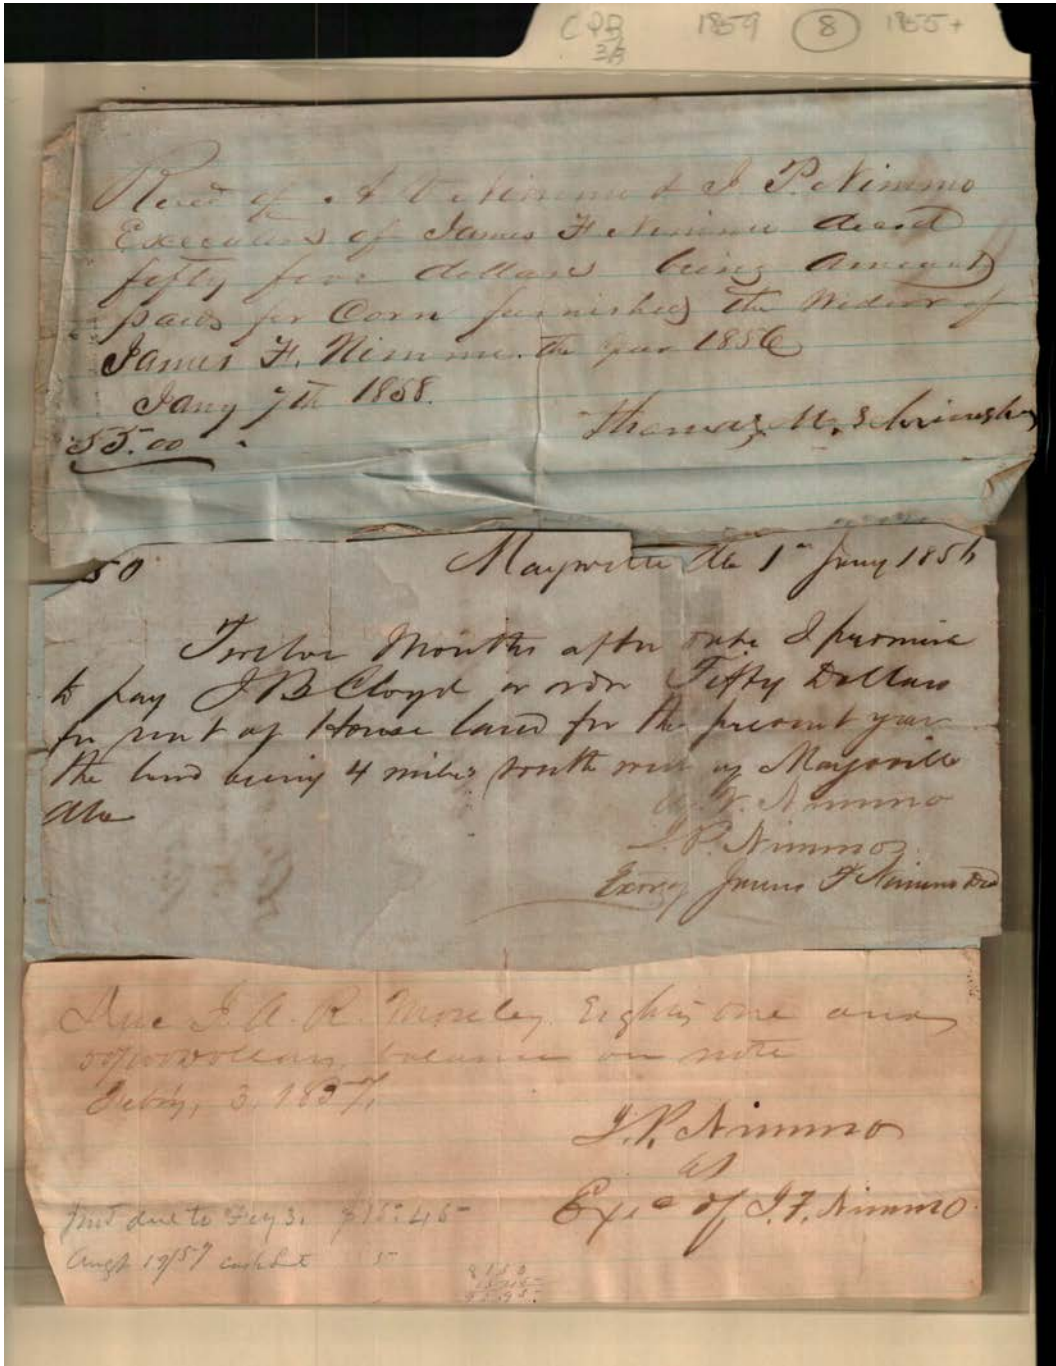 CPB 1859 8 1855+
Recd of A. V. Nimmo & J P. Nimmo
Executors of James F Nimmo decsd
fifty five dollars being Amount
paid for Corn furnished the Widow of
James F. Nimmo. the year 1856
Jany 7th 1858.
55.00
Thomas
50 Maysville Ala 1st Jany 1856
Twelve Months after date I promise
to pay J B Cloyd or order Fifty Dollars
for rent of House land for the present year
the land being 4 miles south west of Maysville
Ala
Nimmo
J. P. Nimmo
Exors of James F Nimmo Decd
Due J. A. R. Mosley Eighty One and
50/100 Dollars, balance on note
Feb'y, 3, 1857.
J. P. Nimmo
as
Exe of J. F. Nimmo
due to Fey 3. $15.45
Augt 19/57 5
8150